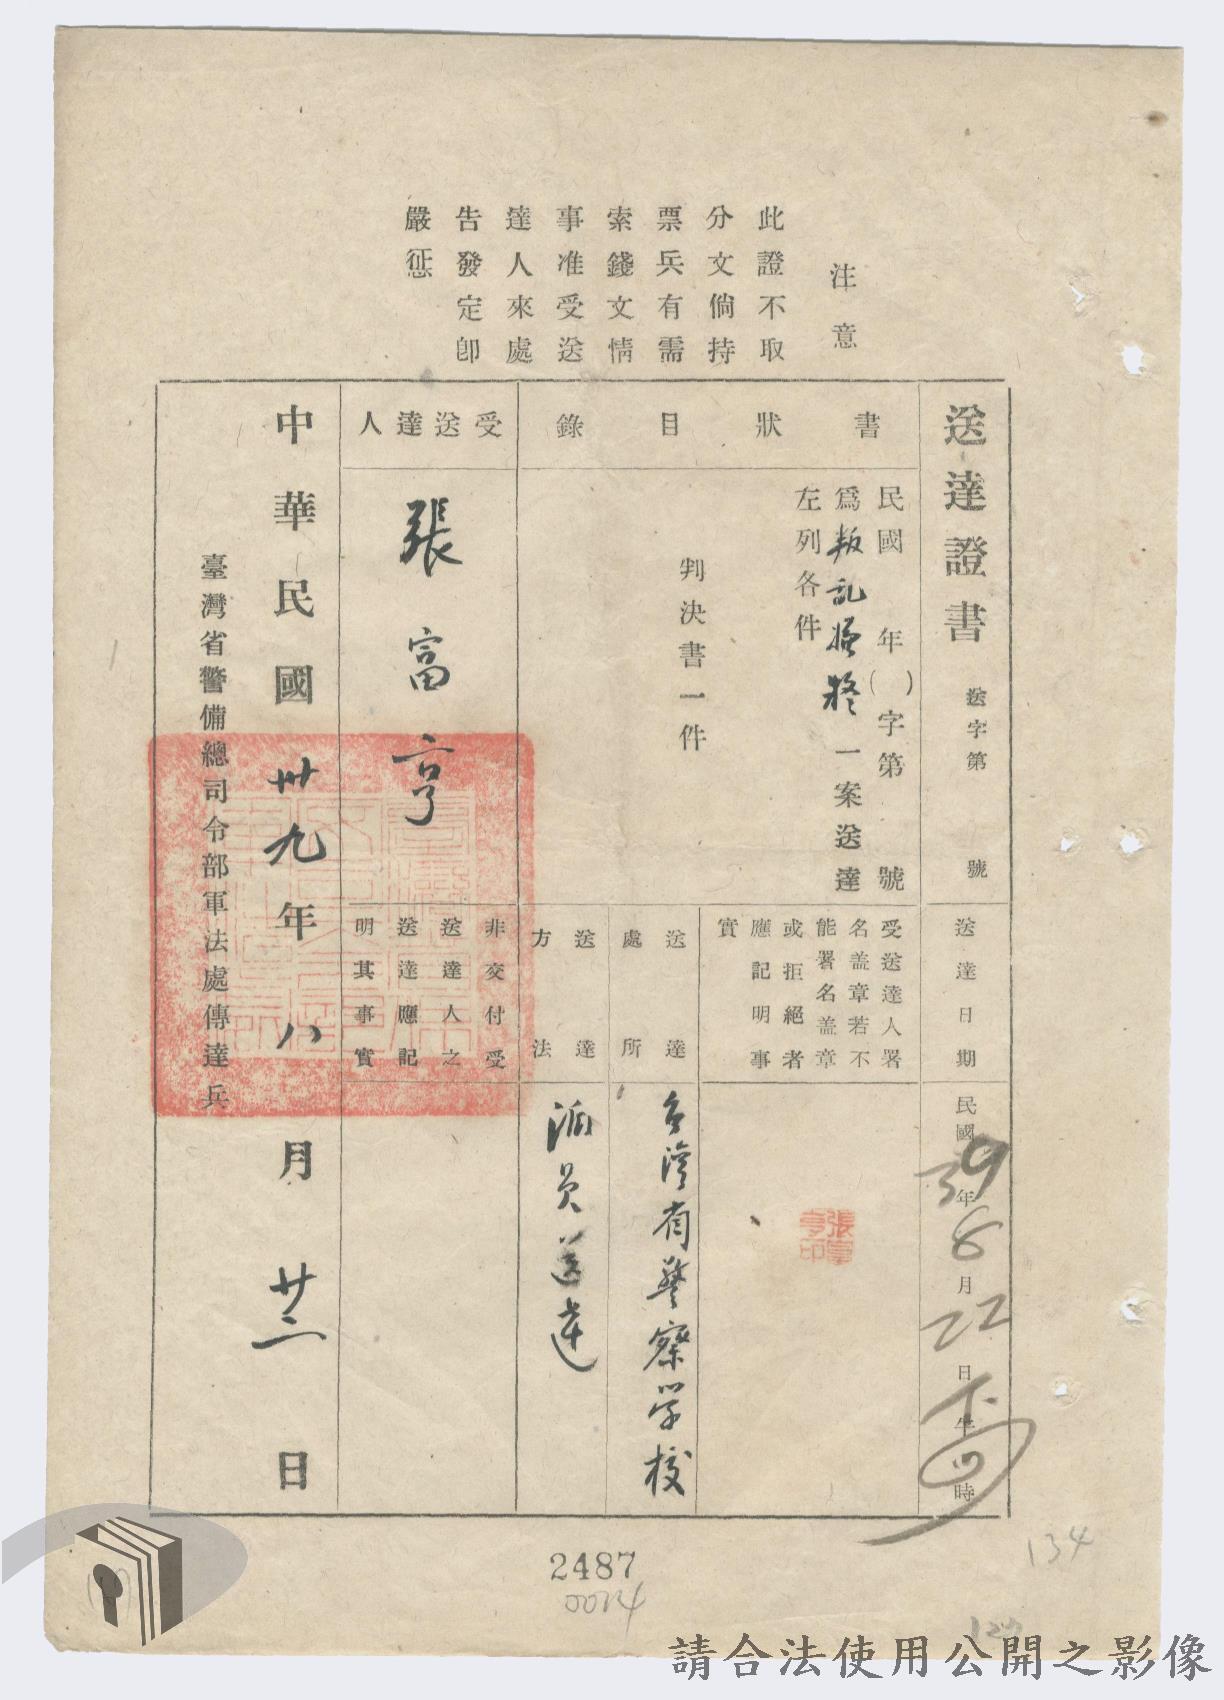 注意
此證不取
分文倘持
票兵有需
索錢文情
事准受送
達人來處
告發定卽
嚴懲
送達證書
送字第 號
書狀目錄
民國 年( )字第 號
爲叛乱嫌疑一案送達
左列各件
判決書一件
受送達人
張富亨
送達日期
民國39年8月22日下午四時
受送達人署
名盖章若不
能署名盖章
或拒絕者
應記明事
實
張富
亨印
送達
處所
台湾省警察学校
送達
方法
派員送達
非交付受
送達人之
送達應記
明其事實
中華民國卅九年八月廿二日
臺灣省警備總司令部軍法處傳達兵
2487
134
請合法使用公開之影像